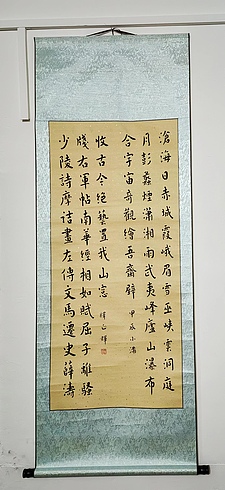 滄海日赤城霞峨眉雪巫峽雲洞庭
月彭蠡煙瀟湘雨武夷峰廬山瀑布
合宇宙奇觀繪吾齋壁
少陵詩摩詰畫左傳文馬遷史薛濤
牋右軍帖南華經相如賦屈子離騷
收古今絕藝置我山窓